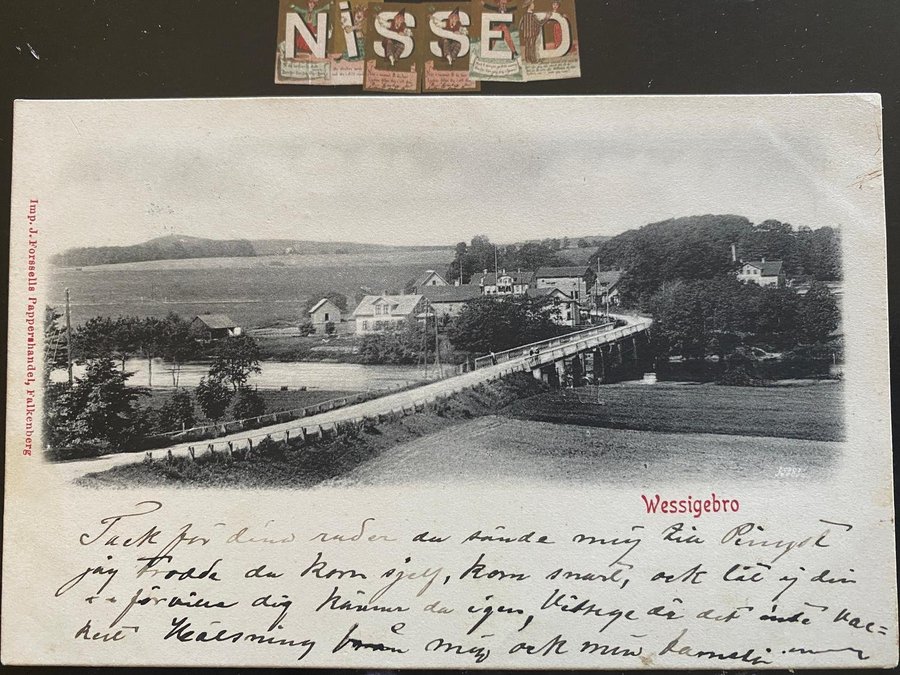 NISSED
Imp. J. Forssells Pappershandel, Falkenberg
Wessigebro
Tack för dine rader du sände mig till Pingst
jag trodde du kom sjelf, kom snart, ock låt ej din
förvilla dig känner du igen, Vittsege är det inte vac=
kert Hälsning från mig ock min